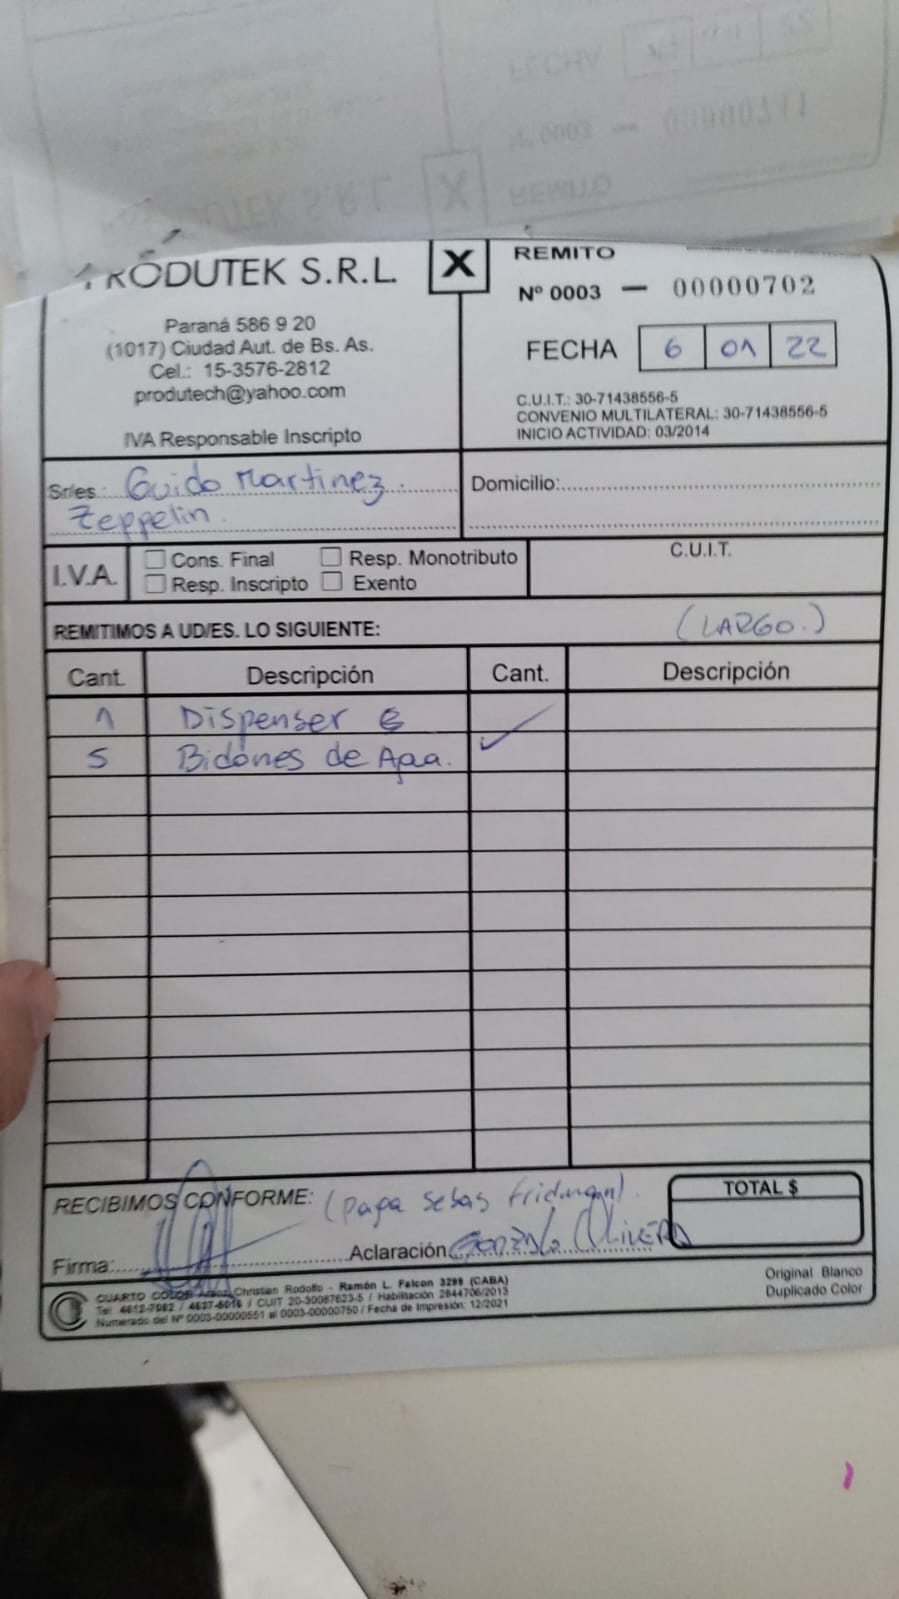 PRODUTEK S.R.L.
X
REMITO
Nº 0003 — 00000702
FECHA 6 01 22
Paraná 586 9 20
(1017) Ciudad Aut. de Bs. As.
Cel.: 15-3576-2812
produtech@yahoo.com
IVA Responsable Inscripto
C.U.I.T.: 30-71438556-5
CONVENIO MULTILATERAL: 30-71438556-5
INICIO ACTIVIDAD: 03/2014
Sr/es: Guido Martinez
Zeppelin
Domicilio:
I.V.A.
Cons. Final Resp. Monotributo
Resp. Inscripto Exento
C.U.I.T.
REMITIMOS A UD/ES. LO SIGUIENTE: (LARGO.)
Cant. Descripción Cant. Descripción
1 Dispenser
5 Bidones de Agua.
RECIBIMOS CONFORME: (Papa Sebas
TOTAL $
Firma: Aclaración Gonzalo Olivera
CUARTO COLOR Christian Rodolfo - Ramón L. Falcon 3299 (CABA)
Tel: 4612-7082 / 4637-6016 / CUIT 20-30087623-5 / Habilitación 2844706/2013
Numerado del Nº 0003-00000551 al 0003-00000750 / Fecha de Impresión: 12/2021
Original Blanco
Duplicado Color